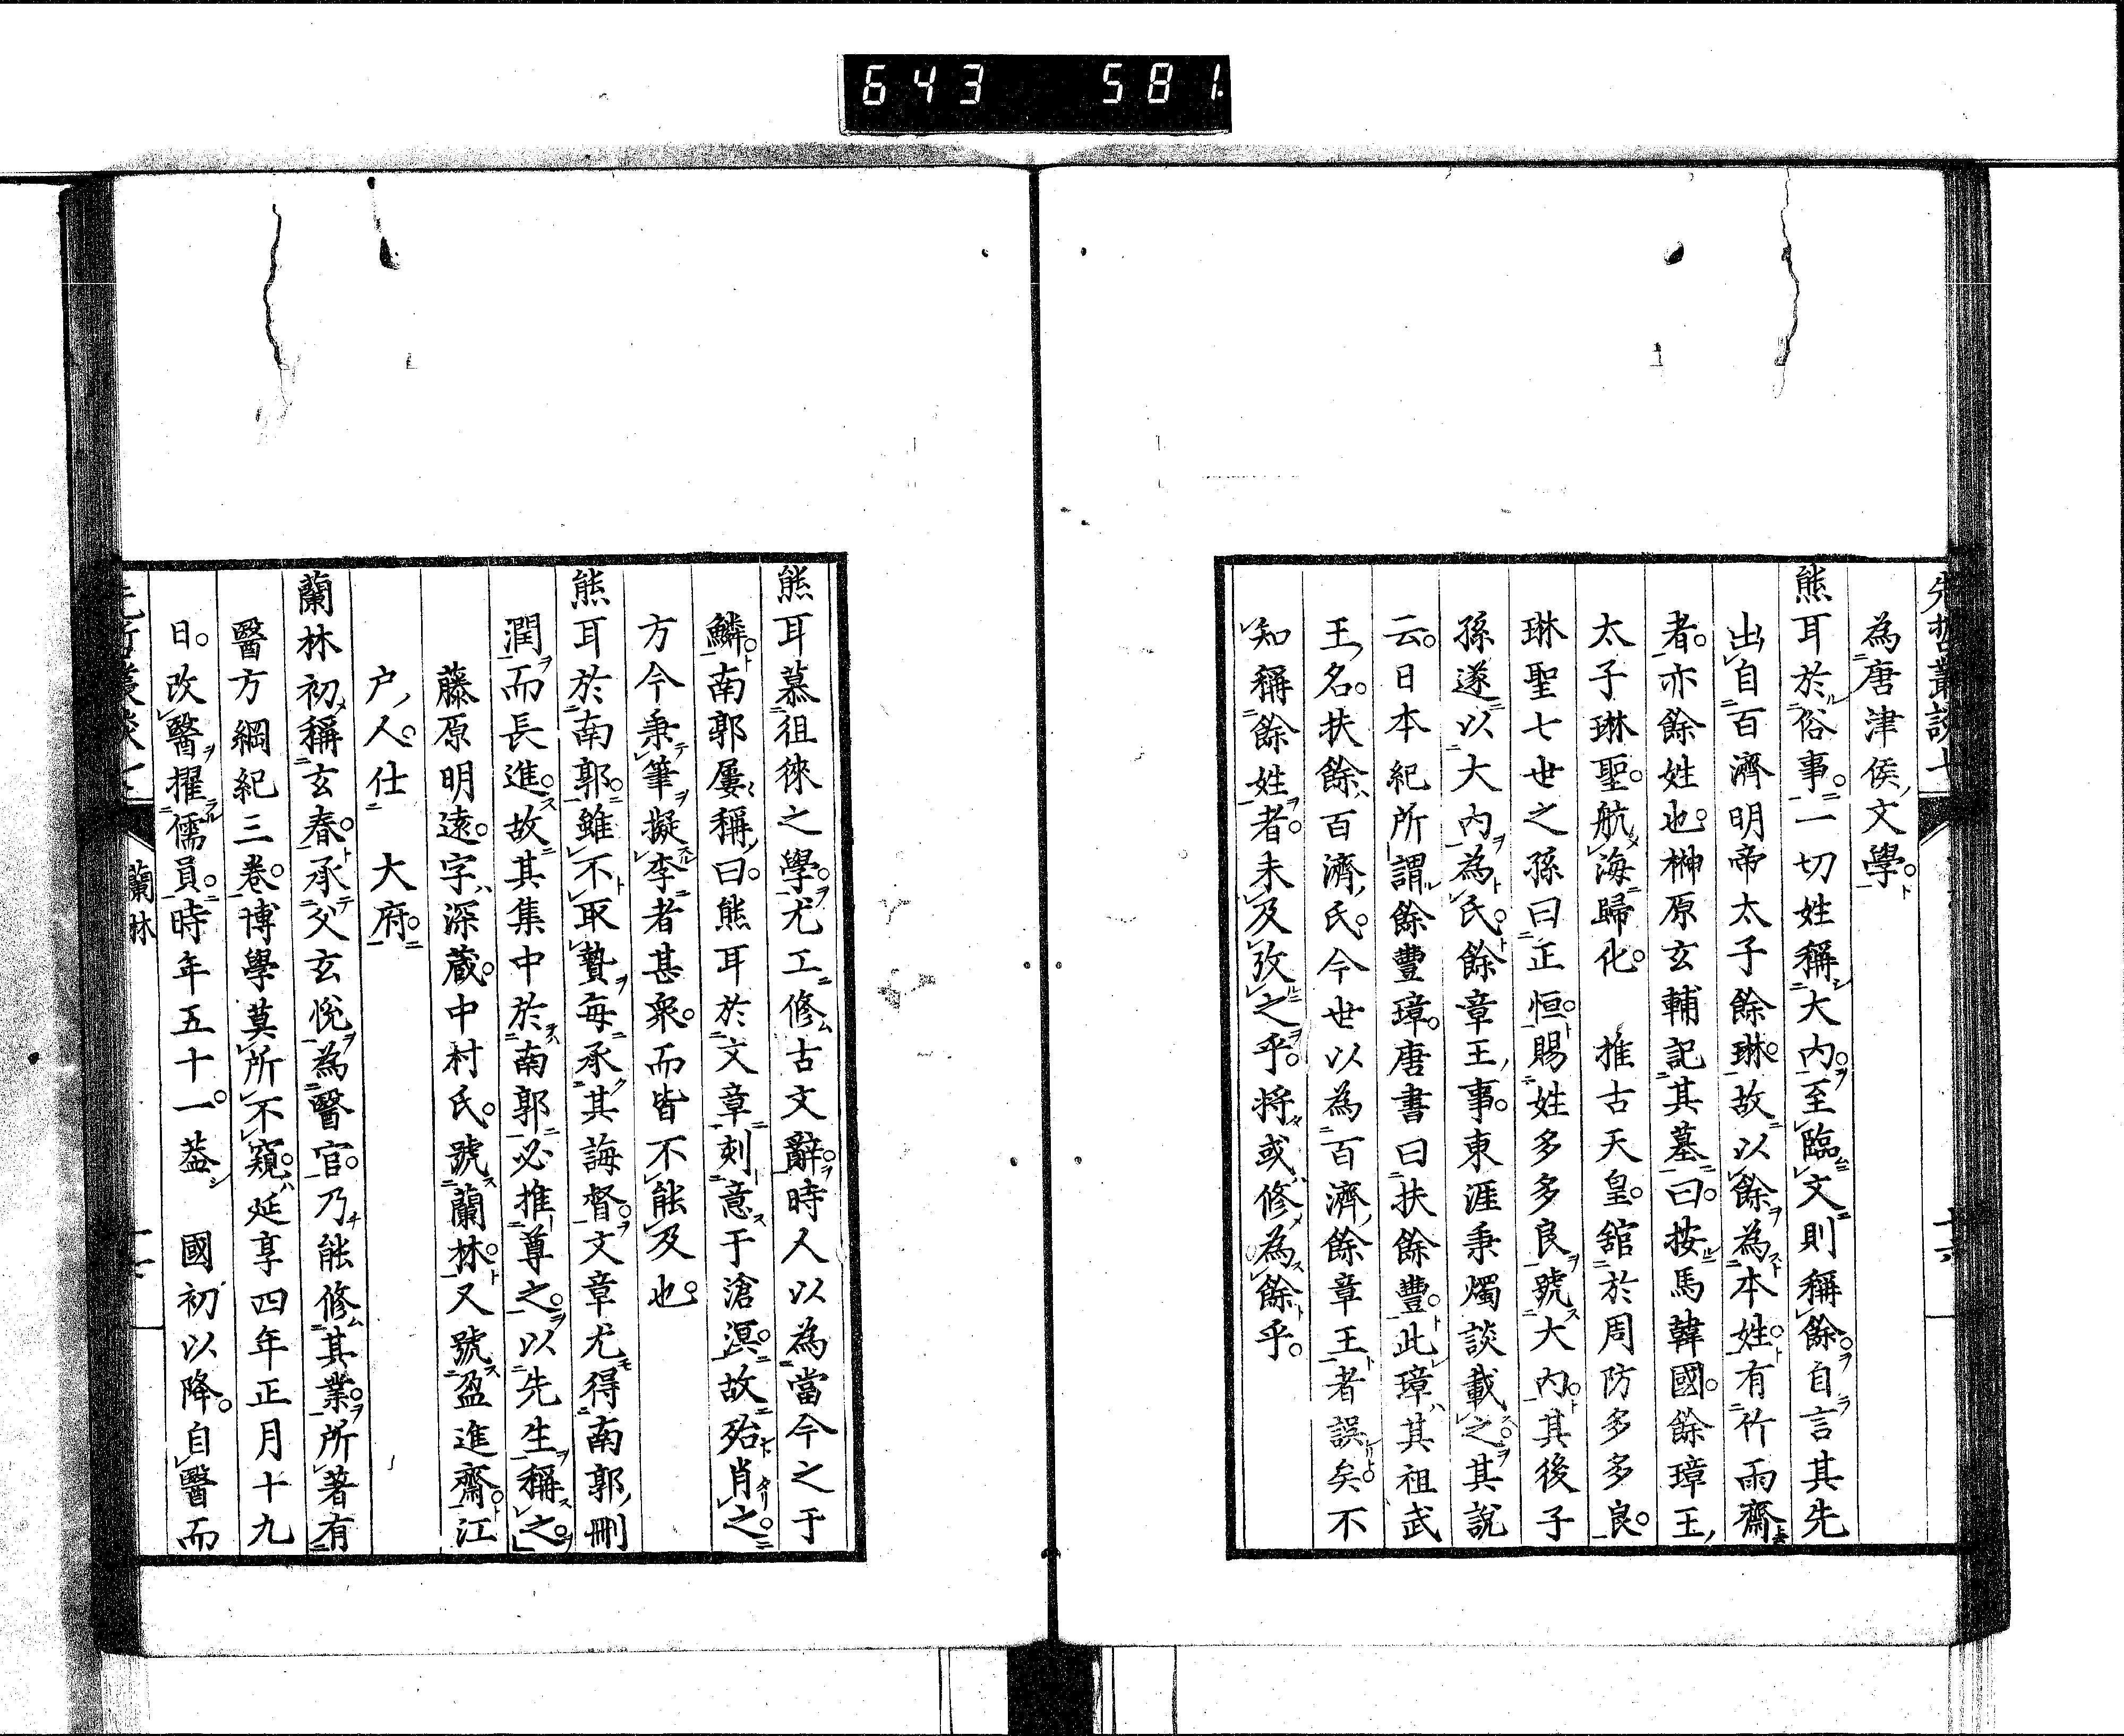 643 581.
先哲叢談七
十六
為唐津侯文學。
熊耳於俗事。一切姓稱大內。至臨文則稱餘。自言其先
出自百濟明帝太子餘琳。故以餘為本姓。有竹雨齋
者。亦餘姓也。榊原玄輔記其墓曰。按馬韓國。餘璋王
太子琳聖。航海歸化。 推古天皇。舘於周防多多良。
琳聖七世之孫曰正恒。賜姓多多良。號大內。其後子
孫遂以大內為氏。餘章王事。東涯秉燭談載之。其說
云。日本紀所謂餘豐璋。唐書曰扶餘豐。此璋其祖武
王名。扶餘百濟氏。今世以為百濟餘章王者誤矣。不
知稱餘姓者。未及攷之乎。將或修為餘乎。
熊耳慕徂徠之學。尤工修古文辭。時人以為當今之于
鱗。南郭屢稱曰。熊耳於文章。刻意于滄溟。故殆肖之。
方今秉筆擬李者甚衆。而皆不能及也。
熊耳於南郭。雖不取贄。每承其誨督。文章尤得南郭刪
潤而長進。故其集中於南郭。必推尊之。以先生稱之。
藤原明遠。字深藏。中村氏。號蘭林。又號盈進齋。江
戶人。仕 大府。
蘭林初稱玄春。承父玄悅為醫官。乃能修其業。所著有
醫方綱紀三卷。博學莫所不窺。延享四年正月十九
日。改醫擢儒員。時年五十一。蓋 國初以降。自醫而
蘭林